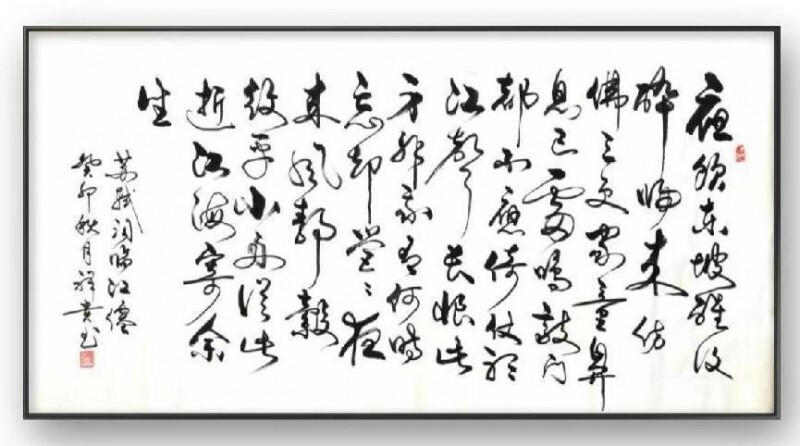 夜饮东坡醒復
醉归来仿
佛三更家童鼻
息已雷鳴敲门
都不應倚仗听
江聲长恨此
身非我有何时
忘却营々夜
来风静縠
纹平小舟从此
逝江海寄余
生
苏轼词临江仙
癸卯秋月祥贵书